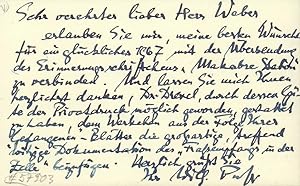 Sehr verehrter lieber Herr Weber
erlauben Sie mir, meine besten Wünsche
für ein glückliches 1967 mit der Übersendung
des Erinnerungsschriftchens, "Makabre
zu verbinden. Und lassen Sie mich Ihnen
herzlichst danken, Dr. Drexel, durch dessen Güte
der Privatdruck möglich geworden, gestattet
zu haben, dem Werkchen aus der
Gefangenen" Blätter die großartige, treffend
Dokumentation des "Totenempfangs in der
Zelle" beifügen. Herzlich grüßt Sie
Ihr
57903